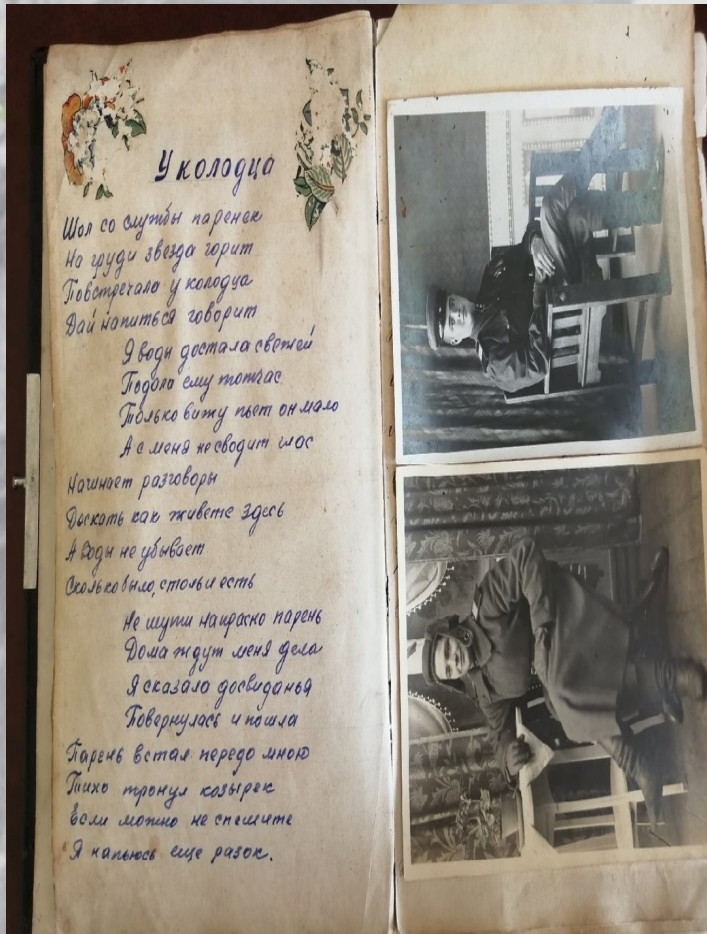 У колодца
Шол со службы паренек
На груди звезда горит
Повстречала у колодца
Дай напиться говорит
Я воды достала свежей
Подала ему тотчас
Только вижу пьет он мало
А с меня не сводит глас
Начинает разговоры
Дескать как живете здесь
А воды не убывает
Сколько было, столь и есть
Не шути напрасно парень
Дома ждут меня дела
Я сказала досвиданья
Повернулась и пошла
Парень встал передо мною
Тихо тронул козырек
Если можно не спешите
Я напьюсь еще разок.